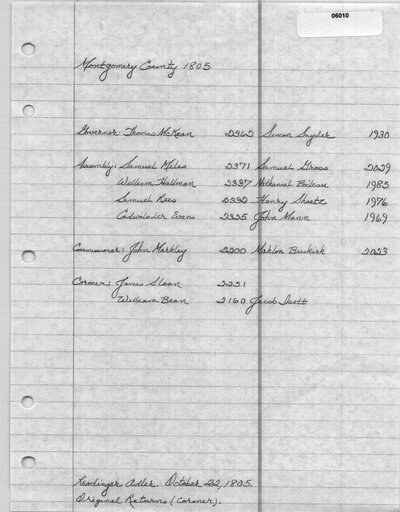 06010
Montgomery County 1805
Governor: Thomas McKean 2362 Simon Snyder 1930
Assembly: Samuel Miles 2371 Samuel Gross 2029
William Hallman 2337 Nathaniel Boileau 1985
Samuel Rees 2332 Henry Sheetz 1976
Cadwalader Evans 2325 John Mann 1969
Commissioner: John Markley 2200 Mahlon Buskirk 2023
Coroner: James Sloan 2251
William Bean 2160 Jacob
Readinger Adler. October 22, 1805.
Original Returns (Coroner).